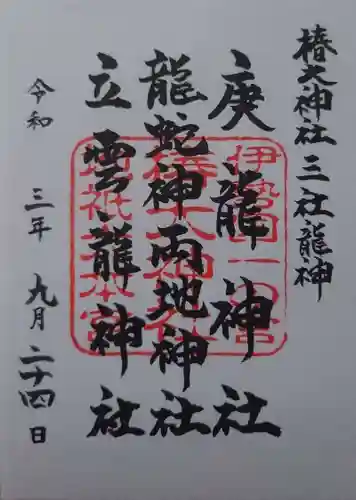 椿大神社三社龍神
庚龍神社
龍蛇神両地神社
立雲龍神社
令和三年九月二十四日
伊勢国一の宮
椿大神社
地祇大本宮